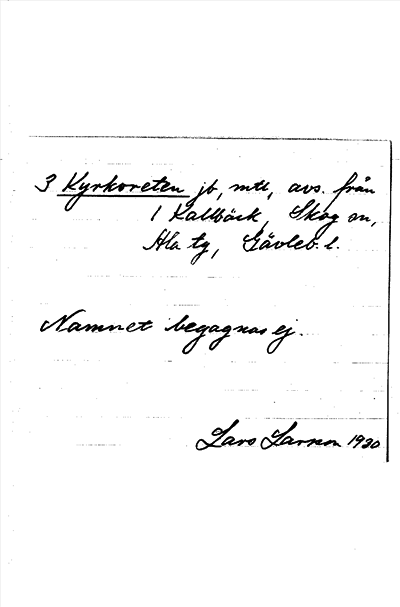 3 Kyrkoreten jb, mtl, avs. från
1 Kallbäck, Skog sn,
Ala tg, Gävleb. l.
Namnet begagnas ej.
Lars Larsson 1930